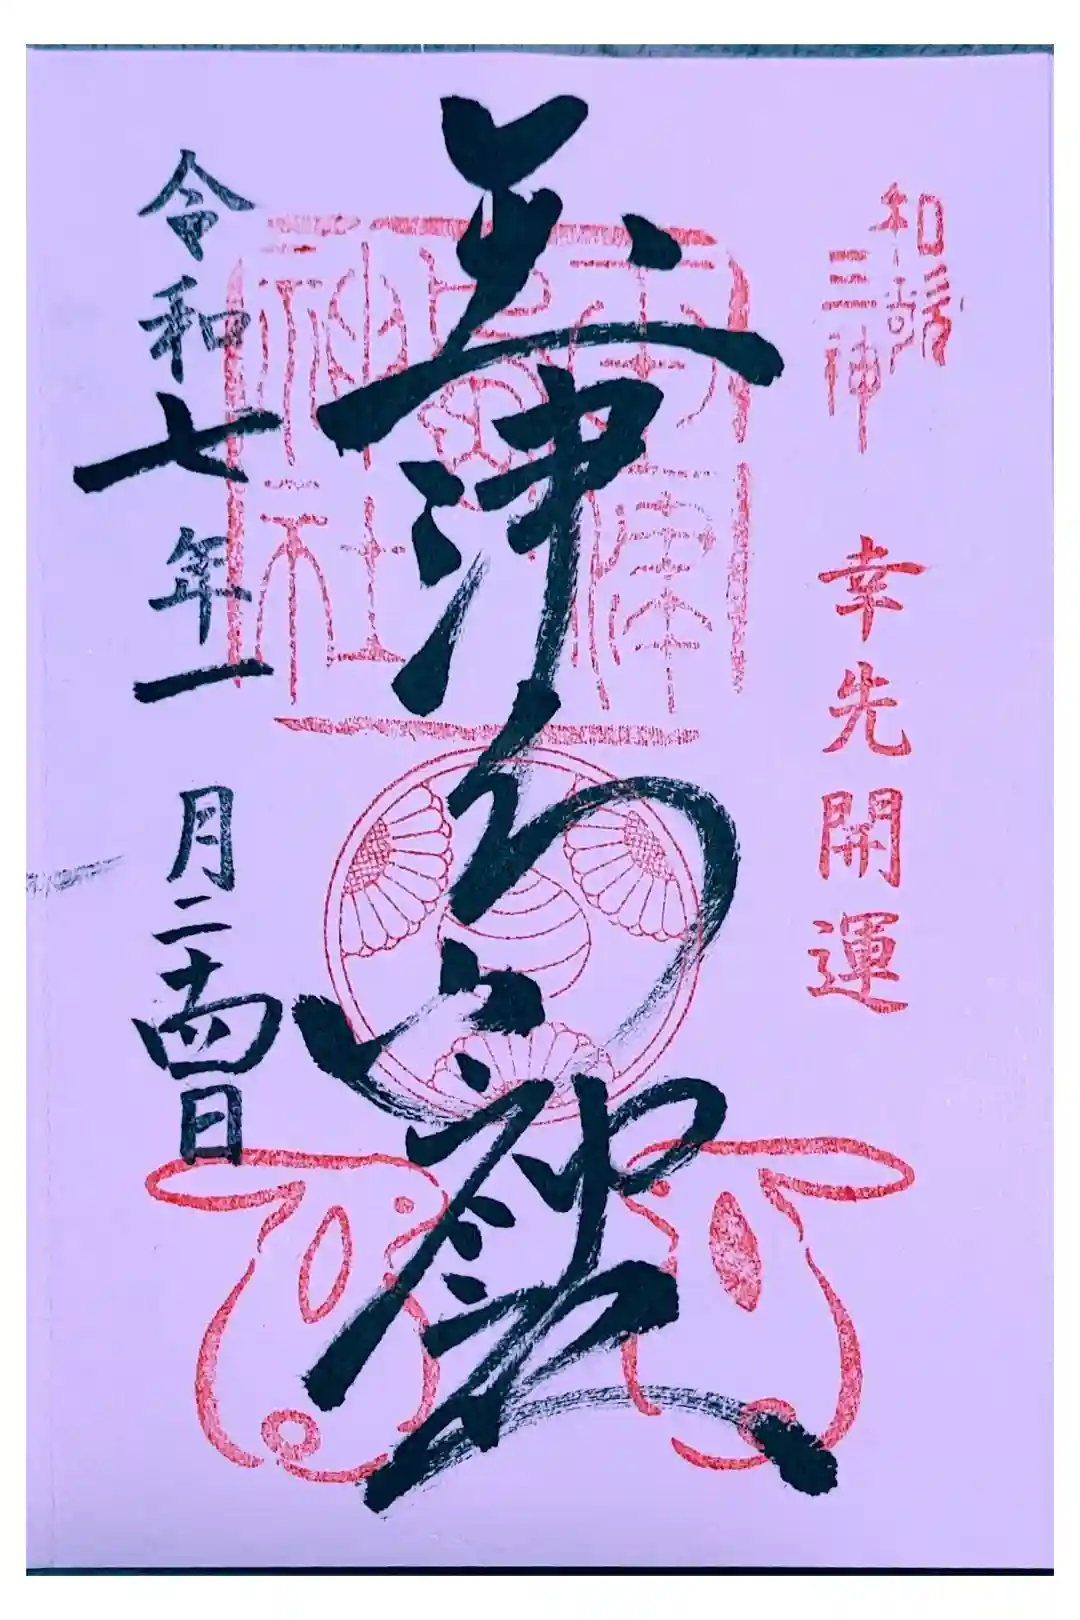 和歌
三神
幸先開運
玉津島神社
令和七年一月二十四日